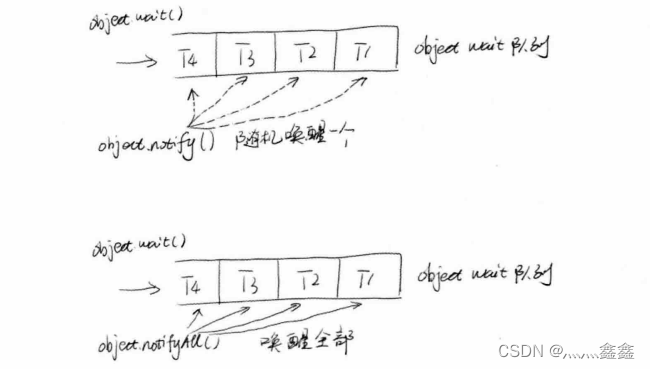 object.wait()
T4 T3 T2 T1 object wait 队列
object.notify() 随机唤醒一个
object.wait()
T4 T3 T2 T1 object wait 队列
object.notifyAll() 唤醒全部
CSDN @灬灬鑫鑫